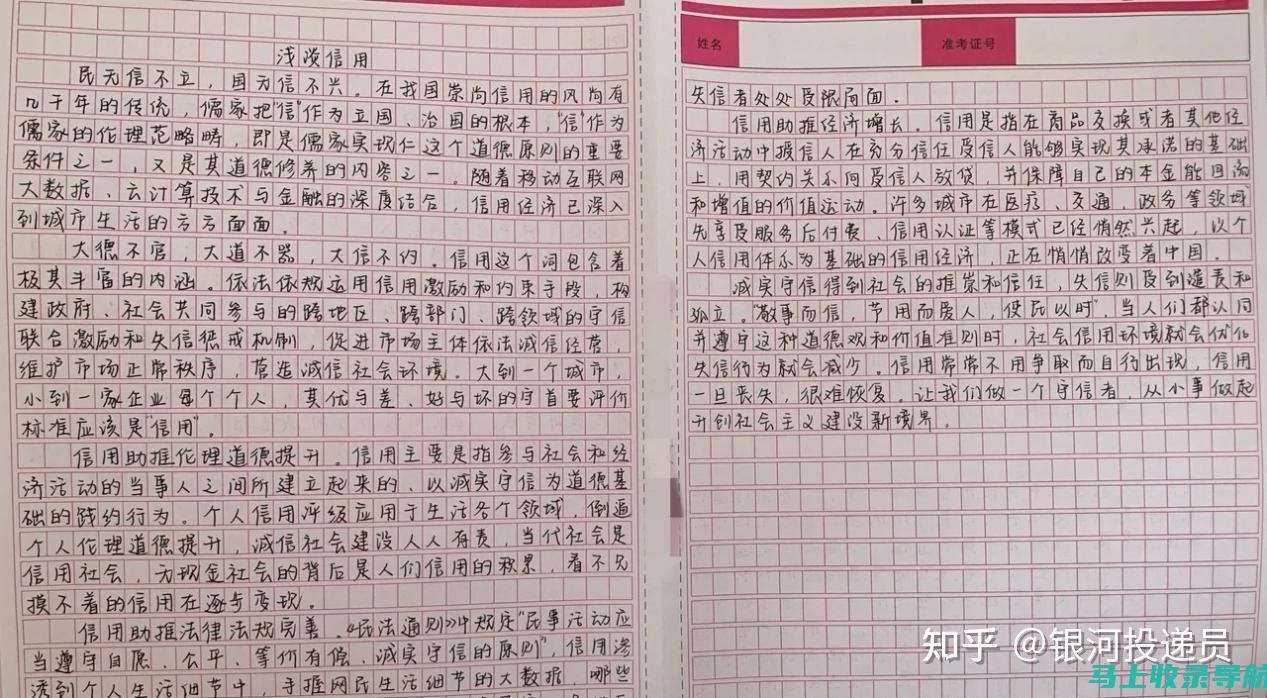 浅谈信用
民无信不立，国为信不兴。在我国崇尚信用的风尚有
几千年的传统，儒家把“信”作为立国、治国的根本，“信”作为
儒家的伦理范略畴，即是儒家实现仁这个道德原则的重要
条件之一，又是其道德修养的内容之一。随着移动互联网
大数据、云计算技术与金融的深度结合，信用经济已深入
到城市生活的方方面面。
大德不官，大道不器，大信不约。信用这个词包含着
极其丰富的内涵。依法依规运用信用激励和约束手段，构
建政府、社会共同参与的跨地区、跨部门、跨领域的守信
联合激励和失信惩戒机制，促进市场主体依法诚信经营，
维护市场正常秩序，营造诚信社会环境。大到一个城市，
小到一家企业每个个人，其优与差、好与坏的守首要评价
标准应该是“信用”。
信用助推伦理道德提升。信用主要是指参与社会和经
济活动的当事人之间所建立起来的、以诚实守信为道德基
础的践约行为。个人信用评级应用于生活各个领域，倒逼
个人伦理道德提升，诚信社会建设人人有责，当代社会是
信用社会，为现金社会的背后是人们信用的积累，看不见
摸不着的信用在逐步变现。
信用助推法律法规完善。《民法通则》中规定“民事活动应
当遵守自愿、公平、等价有偿、诚实守信的原则”，信用渗
透到个人生活细节中，手握网民生活细节的大数据，哪些
姓名
准考证号
失信者处处受限局面．
信用助推经济增长。信用是指在商品交换或者其他经
济活动中授信人在充分信任受信人能够实现其承诺的基础
上，用契约关系向受信人放贷，并保障自己的本金能回流
和增值的价值运动。许多城市在医疗、交通，政务等领域
先享受服务后付费、信用认证等模式已经悄然兴起，以个
人信用体系为基础的信用经济，正在悄悄改变着中国．
诚实守信得到社会的推崇和信任，失信则受到谴责和
孤立。“敬事而信，节用而爱人，使民以时”，当人们都认同
并遵守这种道德观和价值准则时，社会信用环境就会优化
失信行为就会减少。信用常常不用争取而自行出现，信用
一旦丧失，很难恢复。让我们做一个守信者，从小事做起
开创社会主义建设新境界．
知乎 @银河投递员
马上收录导航